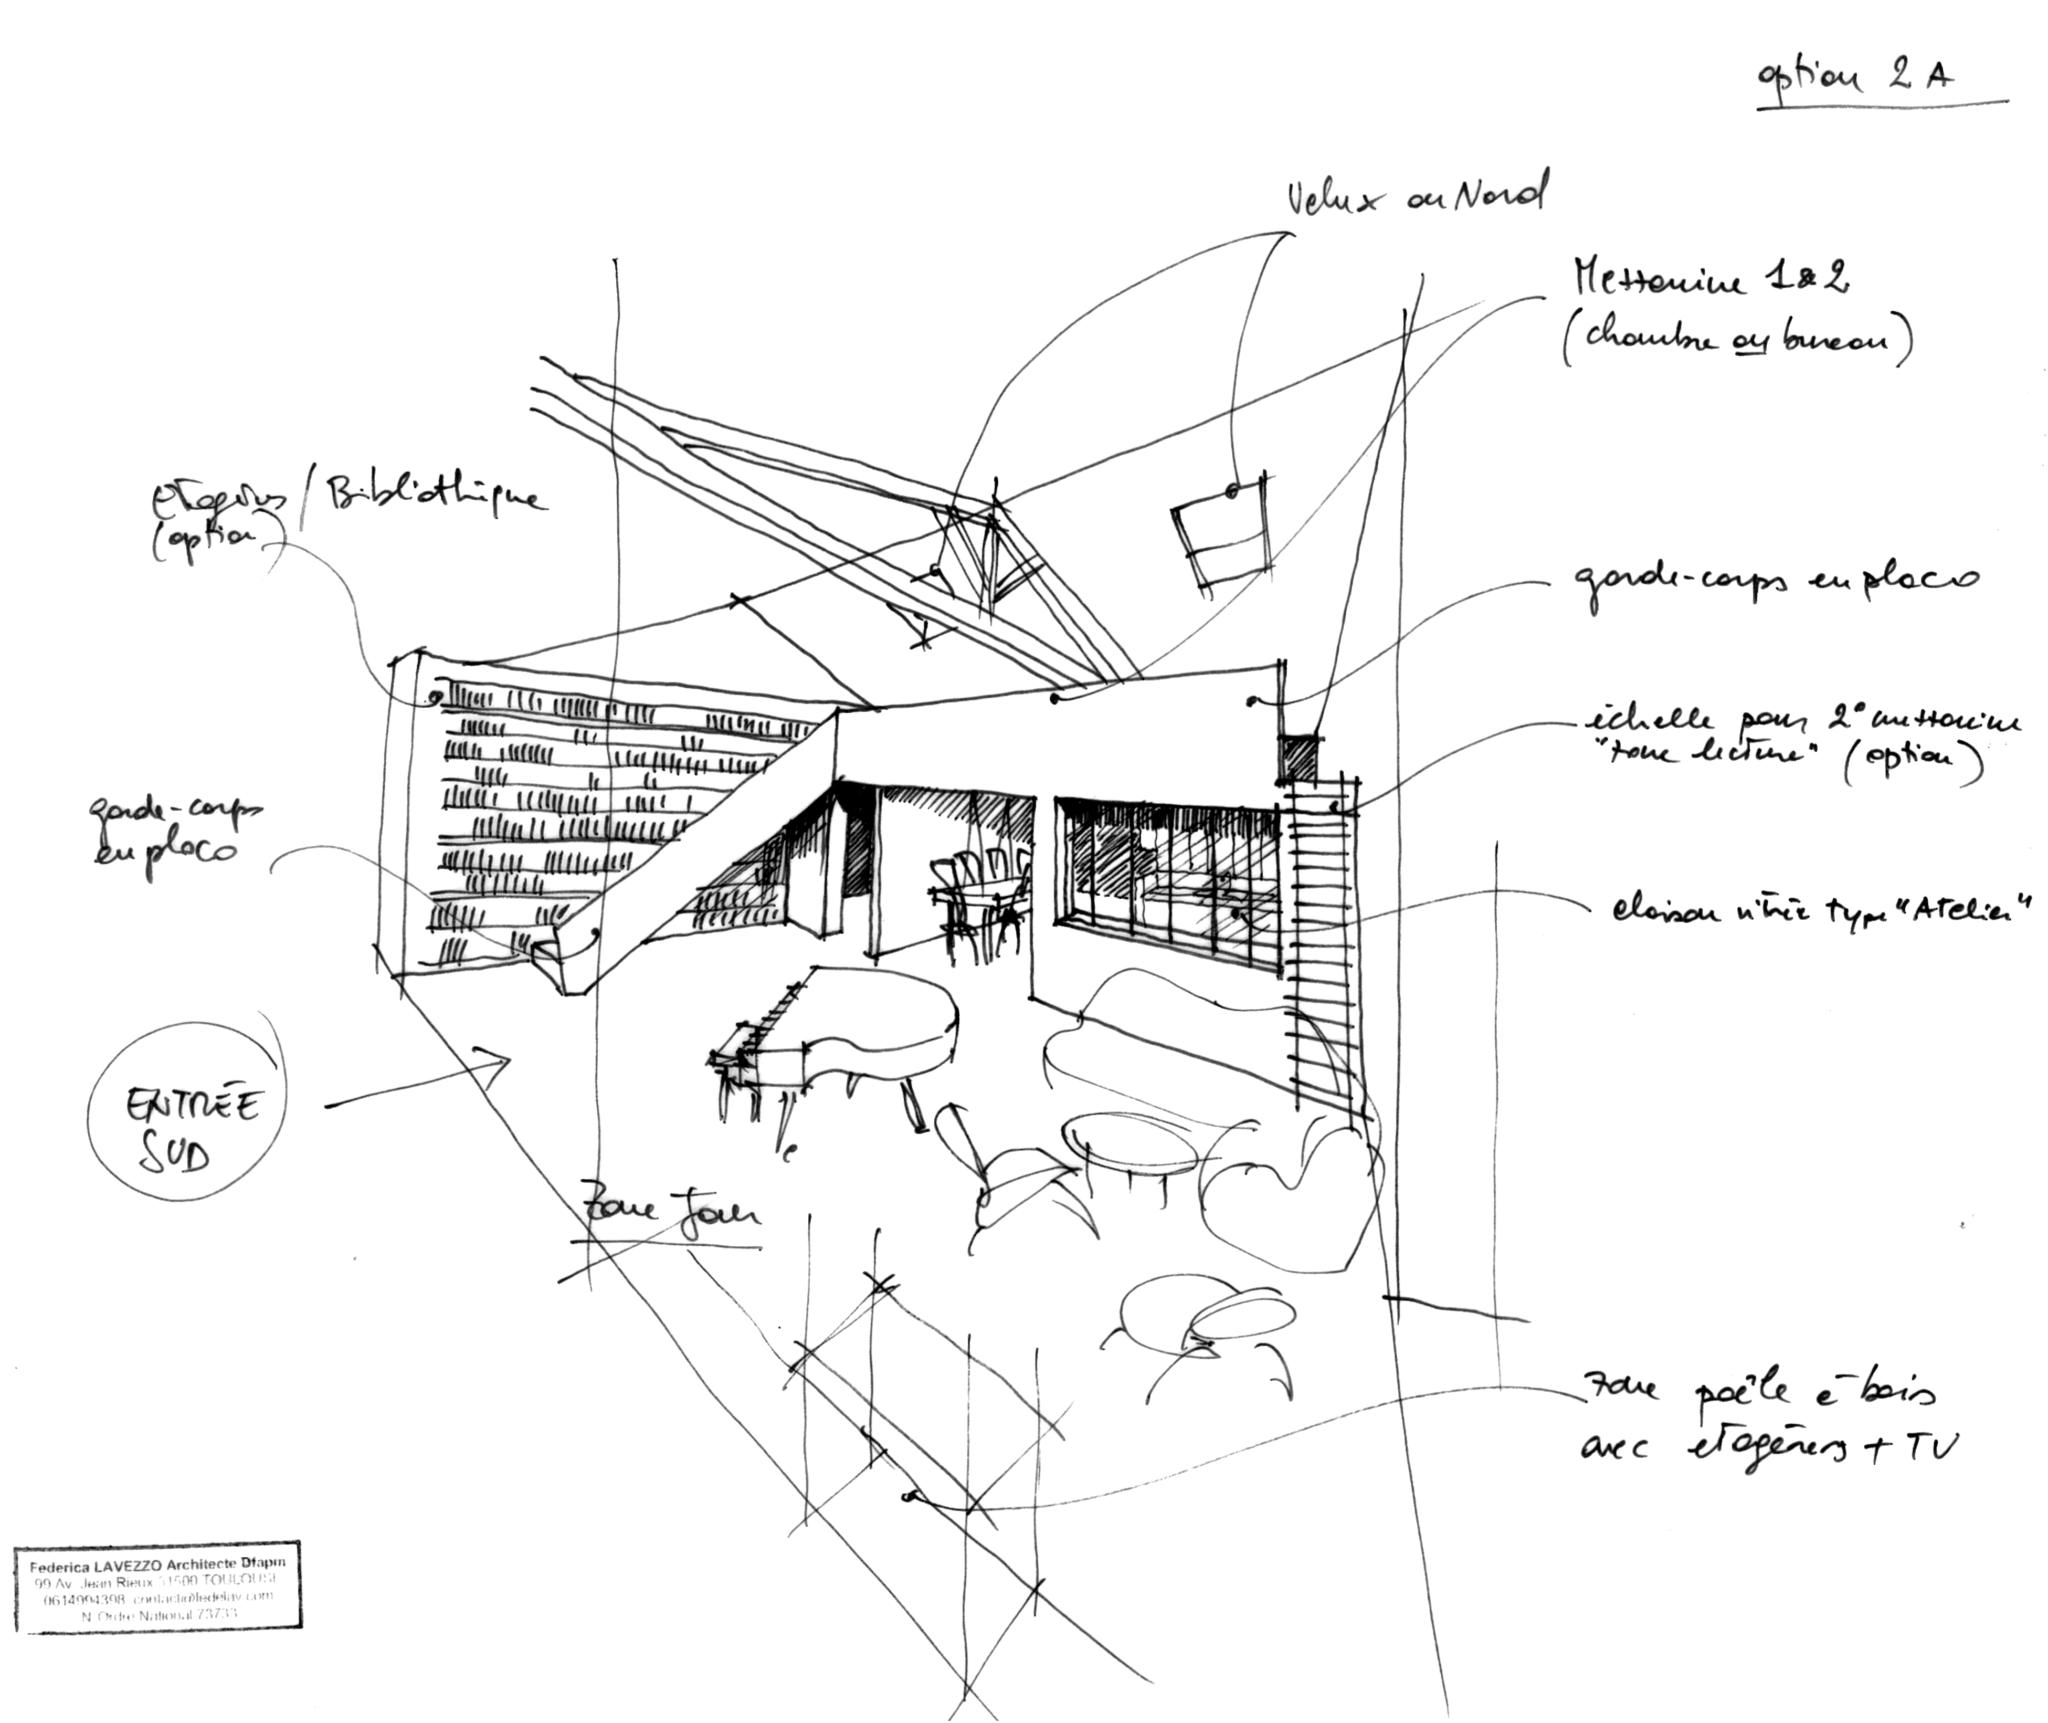 option 2 A
Velux au Nord
Mezzanine 1 & 2
(chambre ou bureau)
etagères / Bibliothèque
(option)
garde-corps en placo
échelle pour 2° mezzanine
"zone lecture" (option)
garde-corps
en placo
cloison vitrée type "Atelier"
ENTRÉE
SUD
Zone Jour
zone poêle à bois
avec etagères + TV
Federica LAVEZZO Architecte Dfapm
99 Av. Jean Rieux 31500 TOULOUSE
0614994398 contact@fedelav.com
N. Ordre National 73733